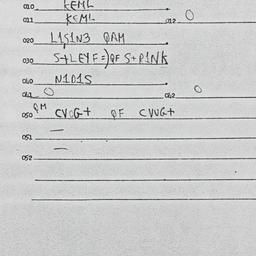 010 KEML
011 KEML 012 O
020 L1S1N3 QAM
030 S+LEYF=)QF S+P1NK
040 N1D1S
041 O 042 O
050 QM CVGG+ QF CVVG+
051 —
052 —